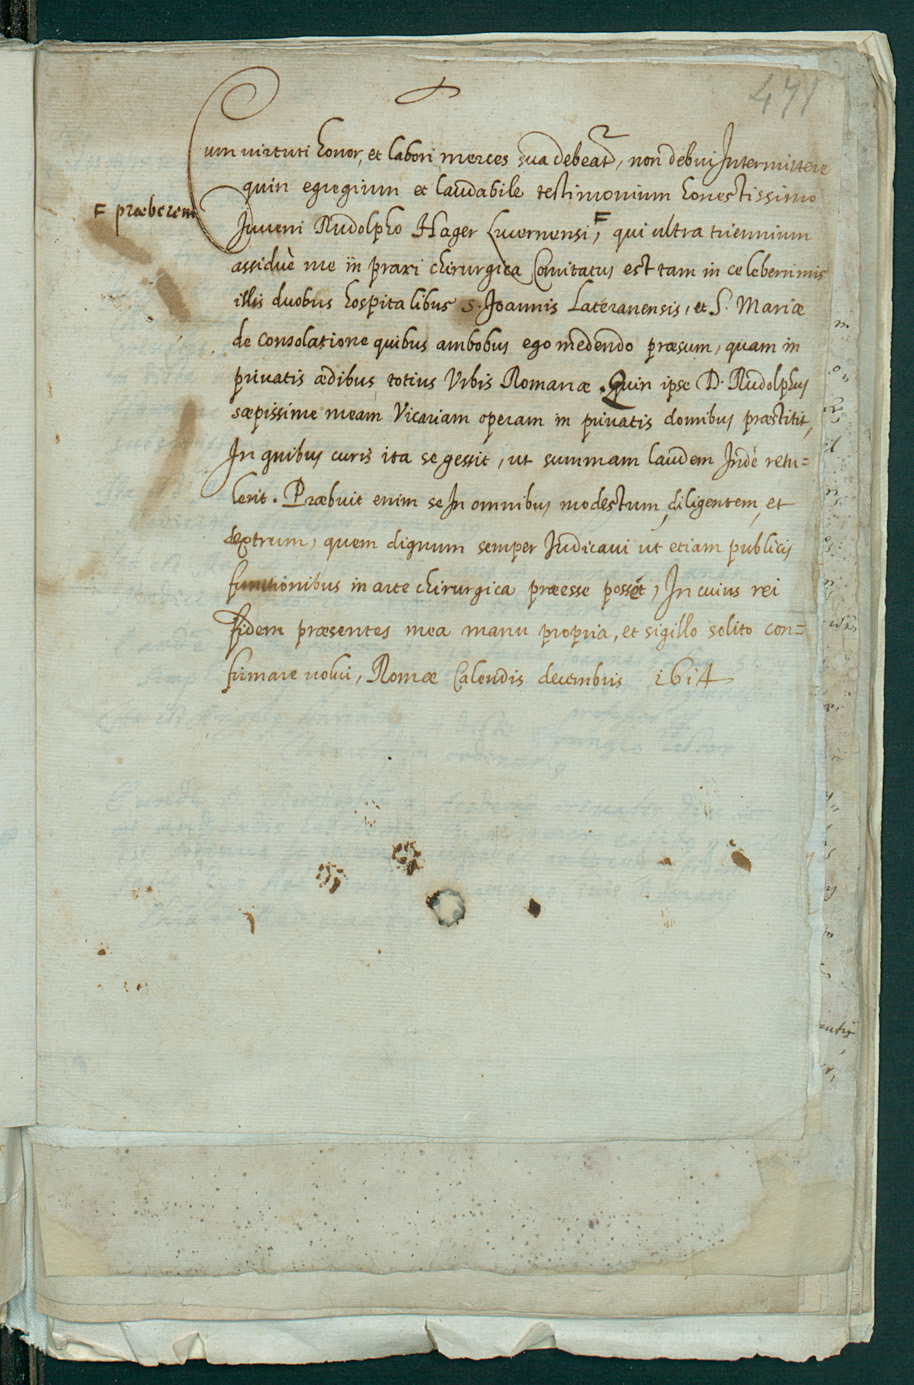 471
Cum virtuti honor, et labori merces sua debeatʳ, non debui Intermittere
quin egregium et laudabile testimonium honestissimo
F præberem
Juveni Rudolpho Hager Lucernensi F, qui ultra triennium
assiduè me in praxi chirurgica Comitatus est tam in celeberrimis
illis duobus hospitalibus S. Joannis Lateranensis, et S. Mariæ
de Consolatione quibus ambobus ego medendo præsum, quam in
privatis ædibus totius Urbis Romanæ. Quin ipse D. Rudolphus
sæpissime meam Vicariam operam in privatis domibus præstitit,
In quibus curis ita se gessit, ut summam laudem Indè retu=
lerit. Præbuit enim se In omnibus modestum, diligentem, et
dextrum, quem dignum semper Iudicavi ut etiam publicis
functionibus in arte chirurgica præesse posset, In cuius rei
fidem præsentes mea manu propria, et sigillo solito con=
firmare volui, Romæ Calendis decembris 1614